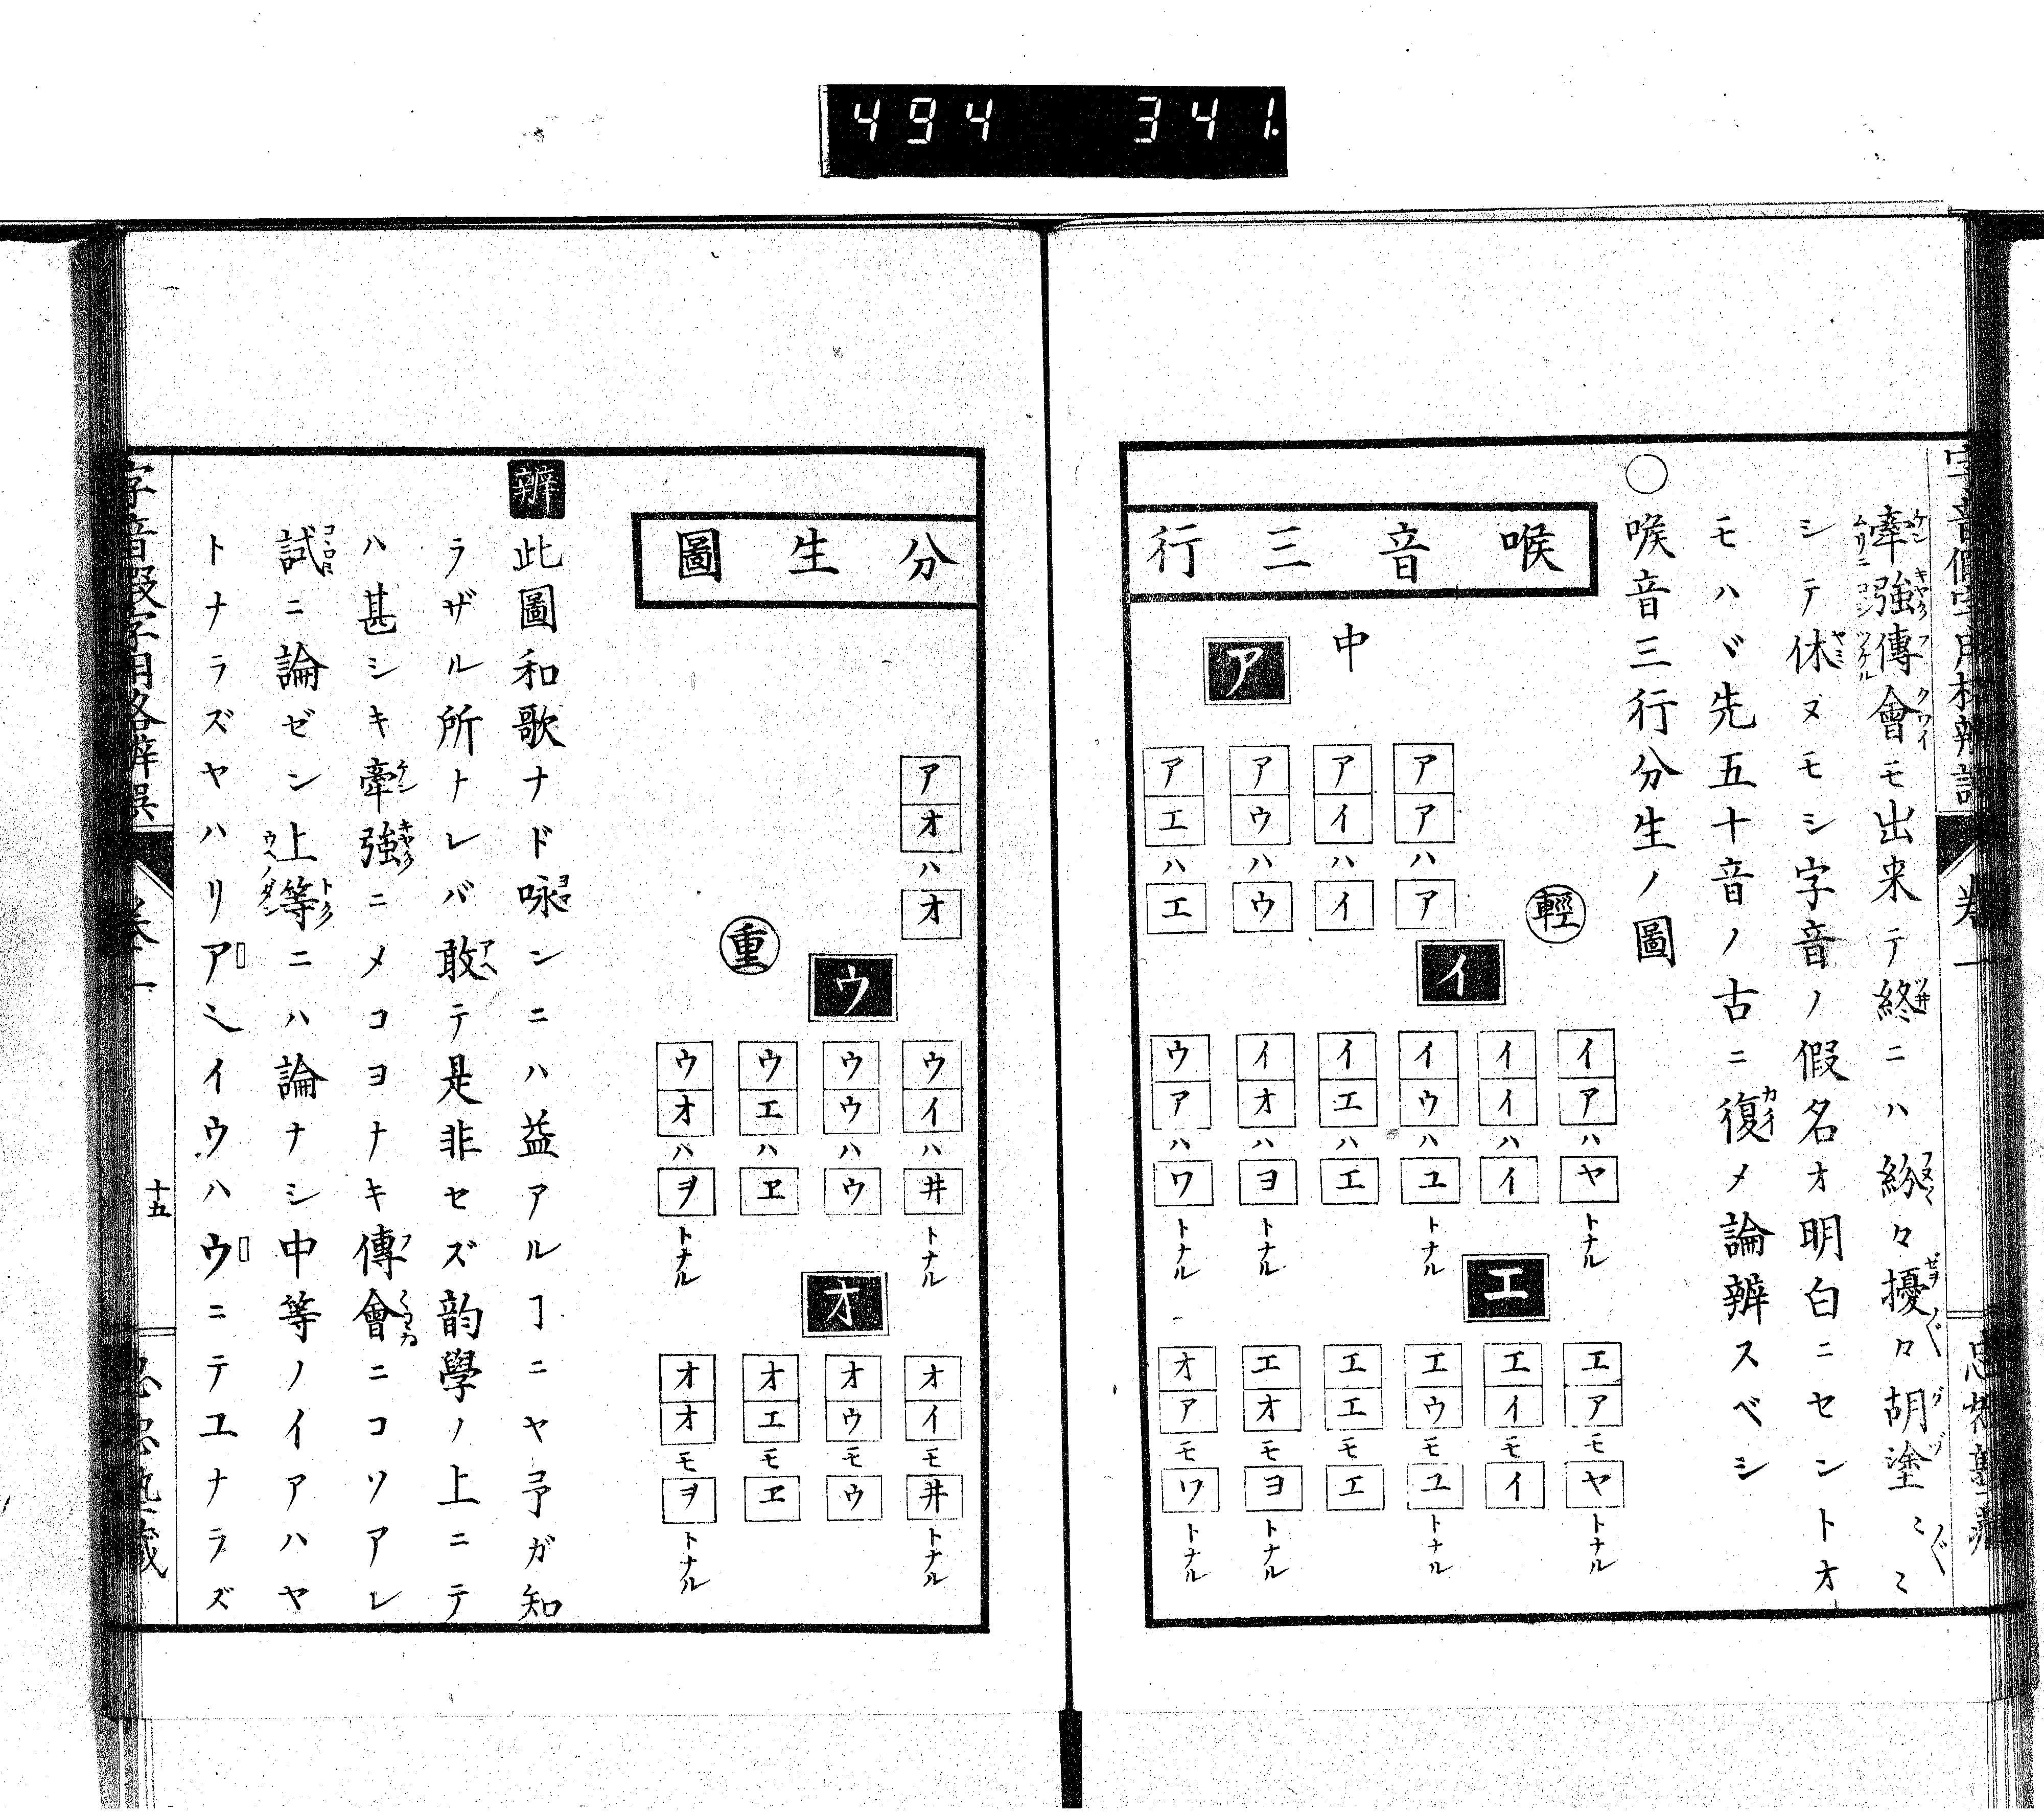 494 341.
牽強傳會モ出来テ終ニハ紛々擾々胡塗〻〻
シテ休ヌモシ字音ノ假名オ明白ニセントオ
モハヾ先五十音ノ古ニ復メ論辨スベシ
○喉音三行分生ノ圖
喉音三行
中
ア
輕
アアハア
アイハイ
アウハウ
アエハエ
イ
イアハヤトナル
イイハイ
イウハユトナル
イエハエ
イオハヨトナル
ウアハワトナル
エ
エアモヤトナル
エイモイ
エウモユトナル
エエモエ
エオモヨトナル
オアモワトナル
分生圖
アオハオ
重
ウ
ウイハ井トナル
ウウハウ
ウエハヱ
ウオハヲトナル
オ
オイモ井トナル
オウモウ
オエモヱ
オオモヲトナル
辨 此圖和歌ナド咏ンニハ益アルヿニヤ予ガ知
ラザル所トレバ敢テ是非セズ韵學ノ上ニテ
ハ甚シキ牽強ニメコヨナキ傳會ニコソアレ
試ニ論ゼン上等ニハ論ナシ中等ノイアハヤ
トナラズヤハリアシイウハウニテユナラズ
字音假字用格辨誤 卷一 十五